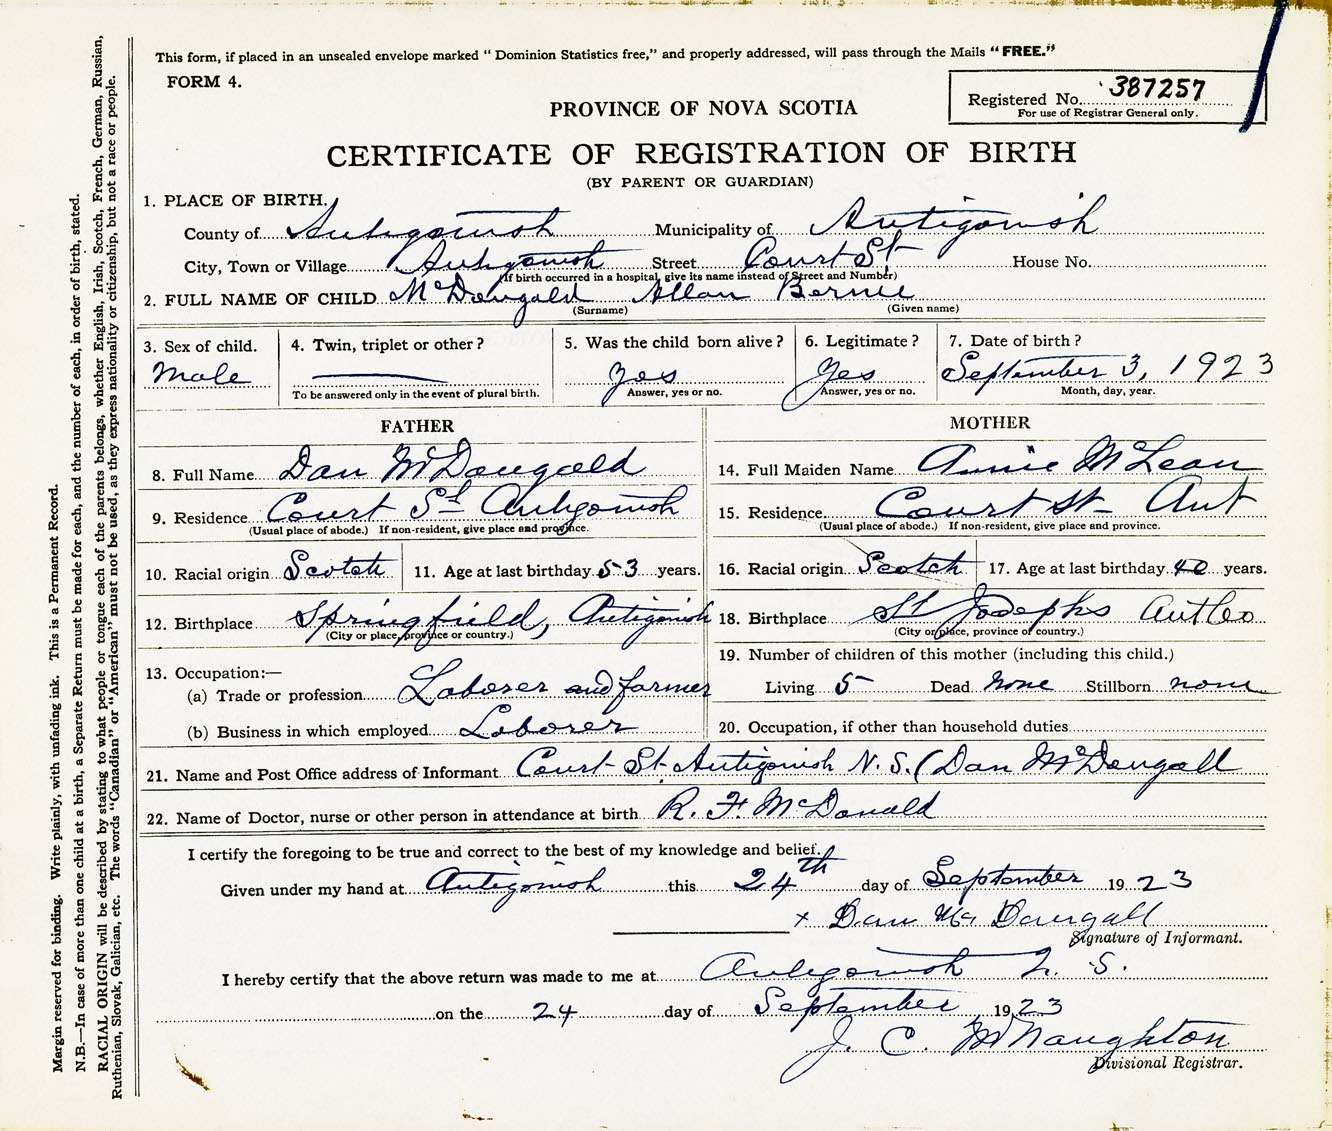 This form, if placed in an unsealed envelope marked “ Dominion Statistics free,” and properly addressed, will pass through the Mails “FREE.”
FORM 4.
Registered No. 387257
For use of Registrar General only.
PROVINCE OF NOVA SCOTIA
CERTIFICATE OF REGISTRATION OF BIRTH
(BY PARENT OR GUARDIAN)
1. PLACE OF BIRTH.
County of Antigonish Municipality of Antigonish
City, Town or Village Antigonish Street Court St House No.
(If birth occurred in a hospital, give its name instead of Street and Number)
2. FULL NAME OF CHILD McDougald Allan Bernie
(Surname) (Given name)
3. Sex of child. 4. Twin, triplet or other? 5. Was the child born alive? 6. Legitimate? 7. Date of birth?
Male — Yes Yes September 3, 1923
To be answered only in the event of plural birth. Answer, yes or no. Answer, yes or no. Month, day, year.
FATHER MOTHER
8. Full Name Dan McDougald 14. Full Maiden Name Annie McLean
9. Residence Court St Antigonish 15. Residence Court St - Ant
(Usual place of abode.) If non-resident, give place and province. (Usual place of abode.) If non-resident, give place and province.
10. Racial origin Scotch 11. Age at last birthday 53 years. 16. Racial origin Scotch 17. Age at last birthday 40 years.
12. Birthplace Springfield, Antigonish 18. Birthplace St Josephs Ant Co
(City or place, province or country.) (City or place, province or country.)
13. Occupation:— 19. Number of children of this mother (including this child.)
(a) Trade or profession Laborer and farmer Living 5 Dead None Stillborn none
(b) Business in which employed Laborer 20. Occupation, if other than household duties
21. Name and Post Office address of Informant Court St. Antigonish N. S. (Dan McDougall
22. Name of Doctor, nurse or other person in attendance at birth R. F. McDonald
I certify the foregoing to be true and correct to the best of my knowledge and belief.
Given under my hand at Antigonish this 24th day of September 1923
x Dan McDougall
Signature of Informant.
I hereby certify that the above return was made to me at Antigonish N. S.
on the 24 day of September, 1923
J. C. McNaughton
Divisional Registrar.
Margin reserved for binding. Write plainly, with unfading ink. This is a Permanent Record.
N.B.—In case of more than one child at a birth, a Separate Return must be made for each, and the number of each, in order of birth, stated.
RACIAL ORIGIN will be described by stating to what people or tongue each of the parents belongs, whether English, Irish, Scotch, French, German, Russian,
Ruthenian, Slovak, Galician, etc. The words “Canadian” or “American” must not be used, as they express nationality or citizenship, but not a race or people.